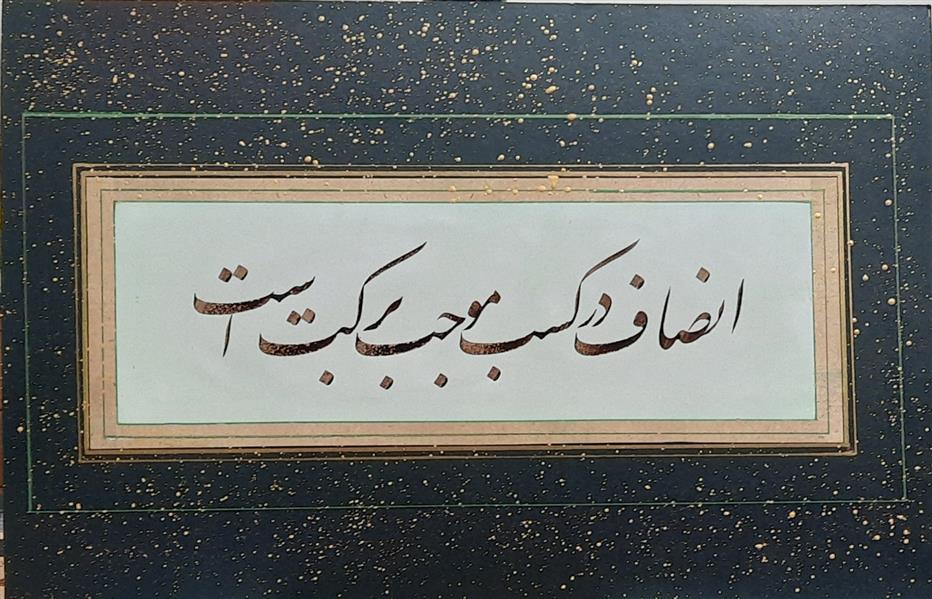 انصاف در کسب موجب برکت است